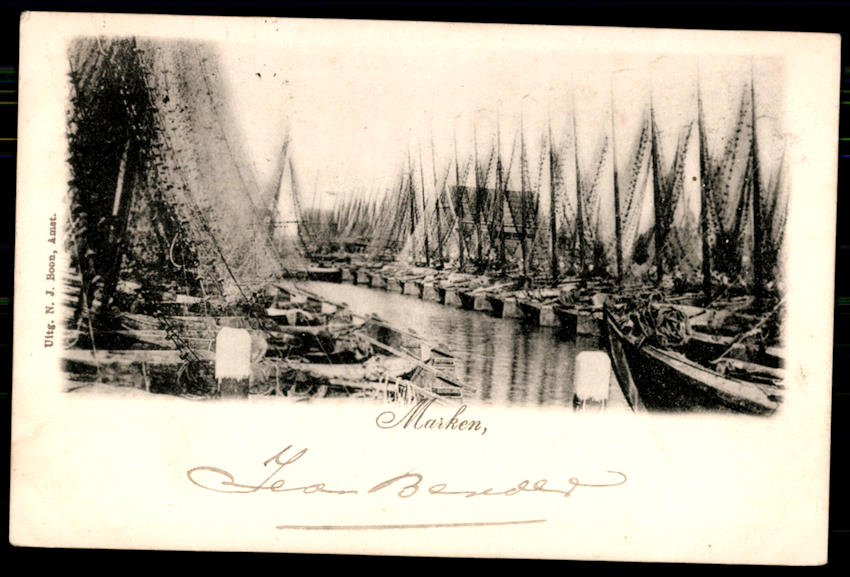 Uitg. N. J. Boon, Amst.
Marken,
Jean Bender